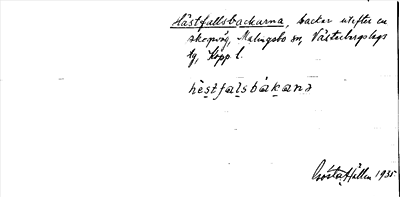 Hästfallsbackarna, backar utefter en
skogsväg, Malingsbo sn, Västerbergslags
tg, Kopp l.
hèstfalsbákana
Gösta Hällen 1935